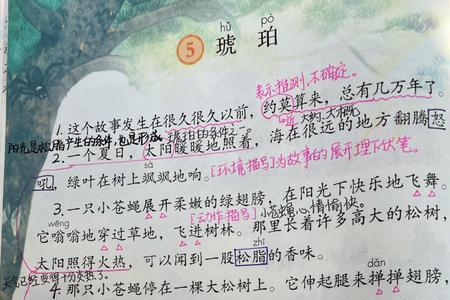 hǔ pò
5 琥珀
表示推测,不确定。
1.这个故事发生在很久很久以前,约莫算来,总有几万年了。
近 大约、大概
阳光是松脂产生的条件,也是形成琥珀的条件之一。
2.一个夏日,太阳暖暖地照着,海在很远的地方翻腾怒
sà
吼,绿叶在树上飒飒地响。[环境描写]为故事的展开埋下伏笔。
3.一只小苍蝇展开柔嫩的绿翅膀,在阳光下快乐地飞舞。
wēng
[动作描写]小苍蝇心情愉快。
它嗡嗡地穿过草地,飞进树林。那里长着许多高大的松树,
zhī
太阳照得火热,可以闻到一股松脂的香味。
天气已经变得十分炎热了。
dǎn
4.那只小苍蝇停在一棵大松树上。它伸起腿来掸掸翅膀,